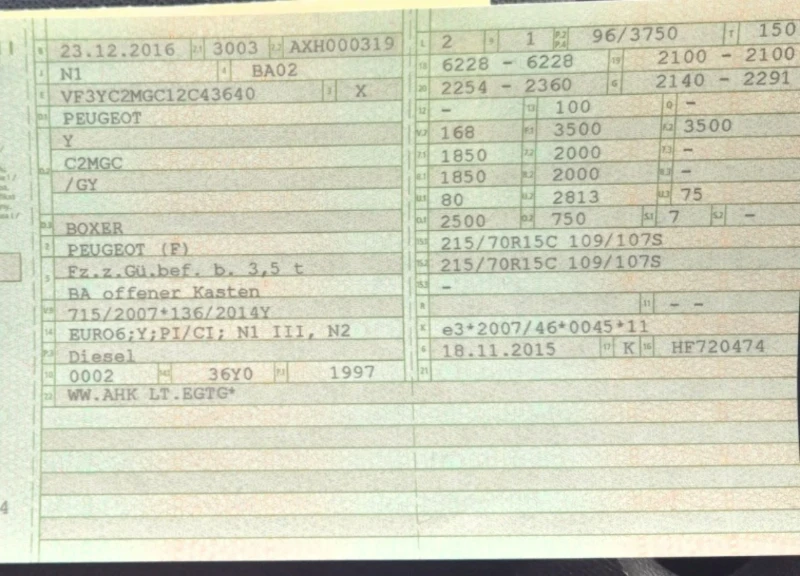 B 23.12.2016 2.1 3003 2.2 AXH000319
J N1 4 BA02
E VF3YC2MGC12C43640 3 X
D.1 PEUGEOT
Y
D.2 C2MGC
/GY
D.3 BOXER
2 PEUGEOT (F)
5 Fz.z.Gü.bef. b. 3,5 t
BA offener Kasten
V.9 715/2007*136/2014Y
14 EURO6;Y;PI/CI; N1 III, N2
P.3 Diesel
10 0002 14.1 36Y0 P.1 1997
22 WW.AHK LT.EGTG*
L 2 9 1 P.2 P.4 96/3750 T 150
18 6228 - 6228 19 2100 - 2100
20 2254 - 2360 G 2140 - 2291
12 - 13 100 Q -
V.7 168 F.1 3500 F.2 3500
7.1 1850 7.2 2000 7.3 -
8.1 1850 8.2 2000 8.3 -
U.1 80 U.2 2813 U.3 75
O.1 2500 O.2 750 S.1 7 S.2 -
15.1 215/70R15C 109/107S
15.2 215/70R15C 109/107S
15.3 -
R 11 - -
K e3*2007/46*0045*11
6 18.11.2015 17 K 16 HF720474
21
4